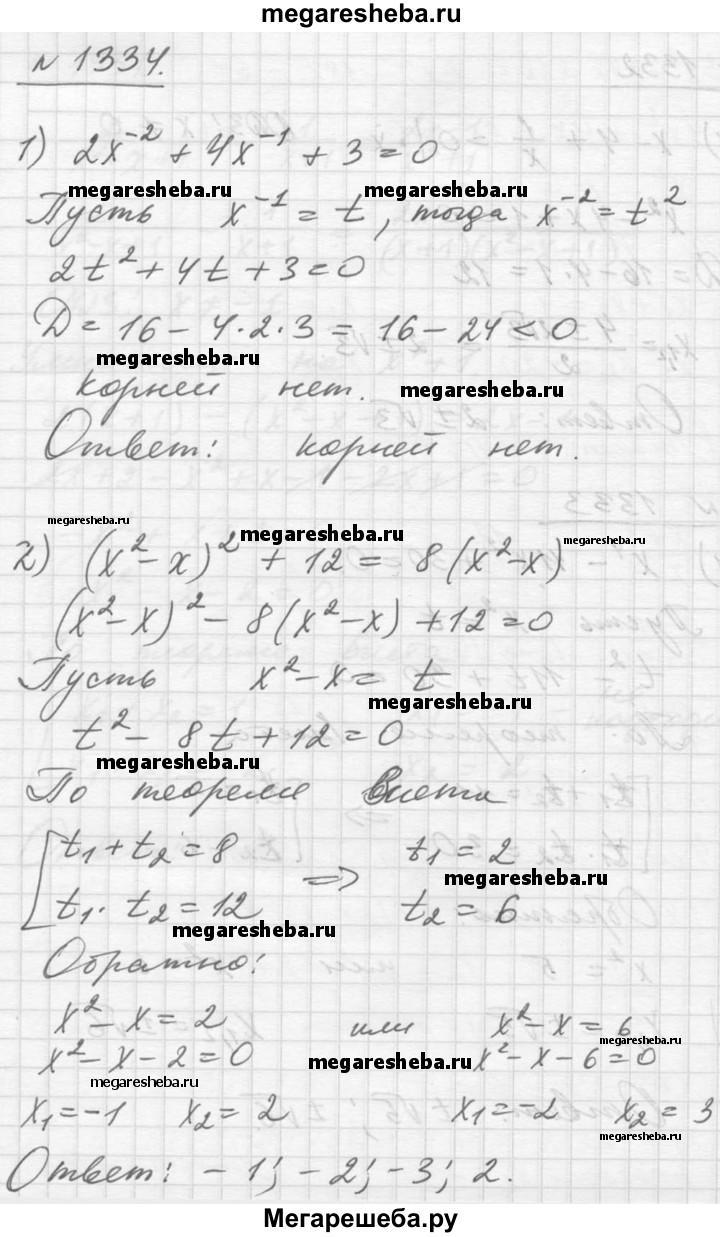 megaresheba.ru
№ 1334.
1) 2x⁻² + 4x⁻¹ + 3 = 0
megaresheba.ru megaresheba.ru
Пусть x⁻¹ = t, тогда x⁻² = t²
2t² + 4t + 3 = 0
D = 16 - 4·2·3 = 16 - 24 < 0
megaresheba.ru
корней нет. megaresheba.ru
Ответ: корней нет.
megaresheba.ru megaresheba.ru megaresheba.ru
2) (x² - x)² + 12 = 8(x² - x)
(x² - x)² - 8(x² - x) + 12 = 0
Пусть x² - x = t
megaresheba.ru
t² - 8t + 12 = 0
megaresheba.ru
По теореме Виета
[ t₁ + t₂ = 8 t₁ = 2
⇒ megaresheba.ru
t₁ · t₂ = 12 t₂ = 6
megaresheba.ru
Обратно:
x² - x = 2 или x² - x = 6
megaresheba.ru
x² - x - 2 = 0 megaresheba.ru x² - x - 6 = 0
megaresheba.ru
x₁ = -1 x₂ = 2 x₁ = -2 x₂ = 3
megaresheba.ru
Ответ: -1; -2; -3; 2.
Мегарешеба.ру